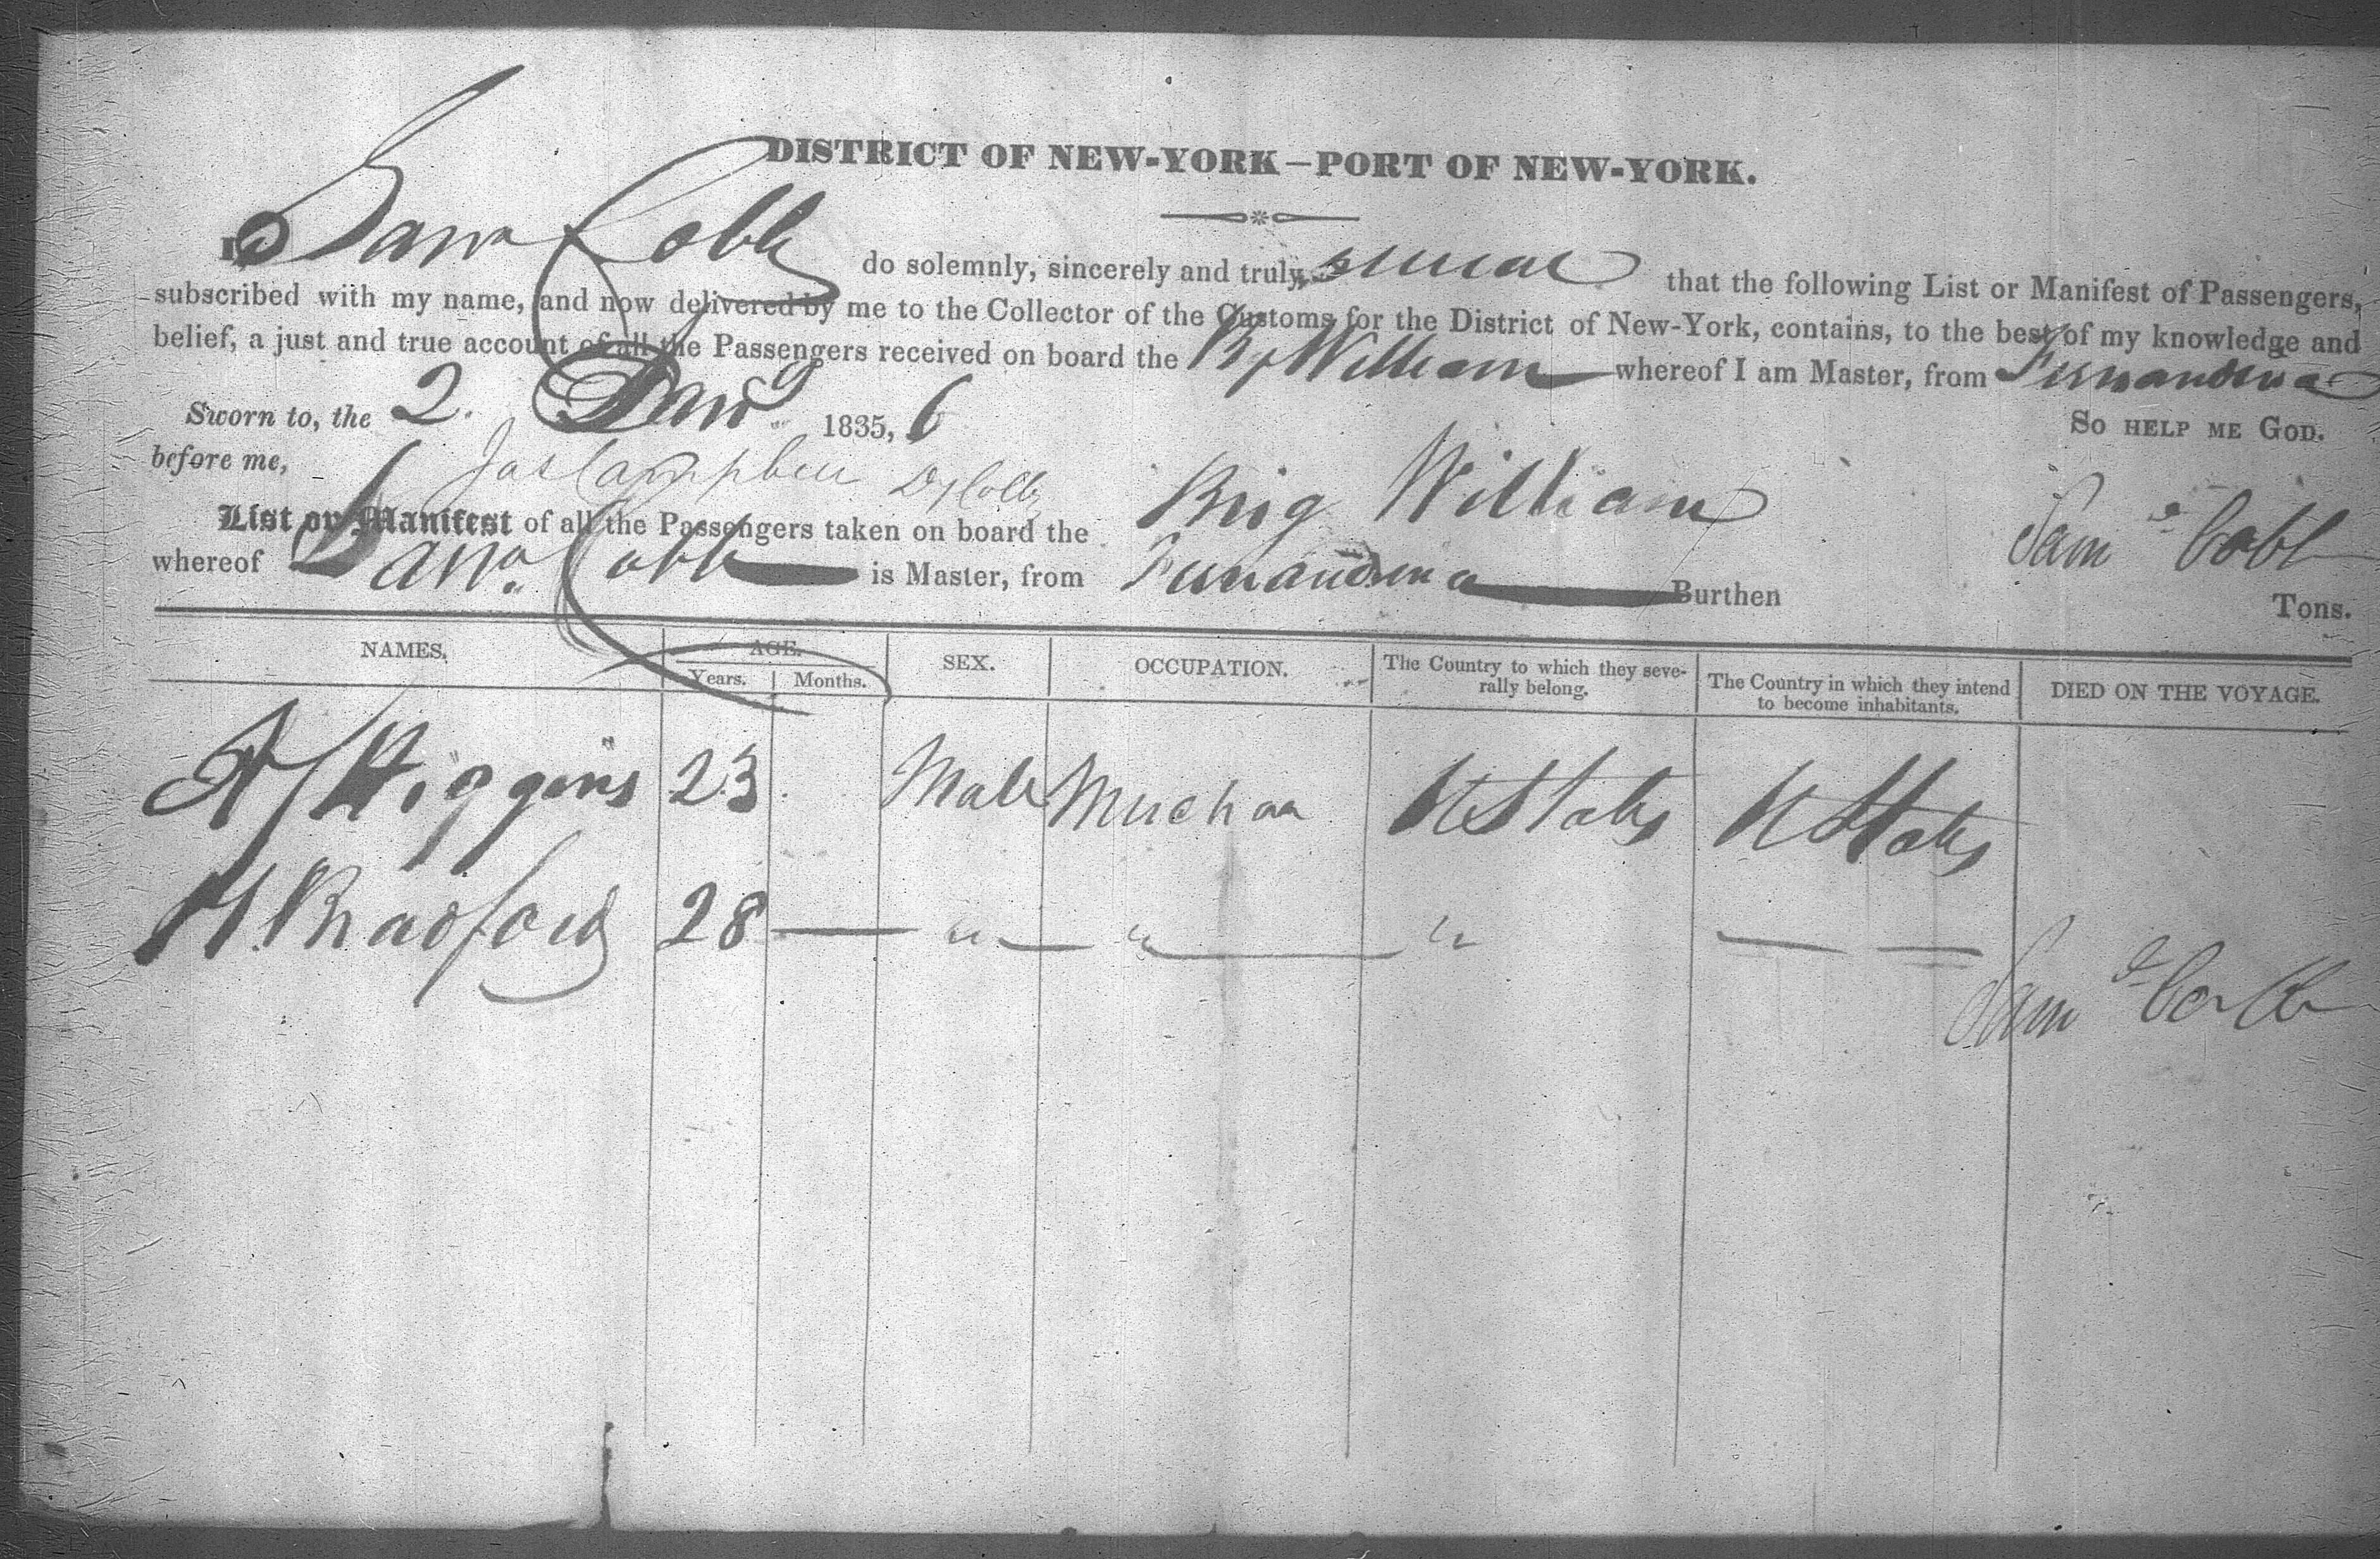 DISTRICT OF NEW-YORK—PORT OF NEW-YORK.
I, Sam Cobb do solemnly, sincerely and truly, swear that the following List or Manifest of Passengers,
subscribed with my name, and now delivered by me to the Collector of the Customs for the District of New-York, contains, to the best of my knowledge and
belief, a just and true account of all the Passengers received on board the Bg William whereof I am Master, from Fernandina
Sworn to, the 2. Jany 1835, 6 So help me God.
before me, Jas Campbell Dy Coll
Saml Cobb
List or Manifest of all the Passengers taken on board the Brig William
whereof Sam Cobb is Master, from Fernandina Burthen Tons.
NAMES. AGE. SEX. OCCUPATION. The Country to which they seve- The Country in which they intend DIED ON THE VOYAGE.
Years. Months. rally belong. to become inhabitants.
A Higgins 23 Male U States U States
Bradford 28 — " — " — " — —
Saml Cobb